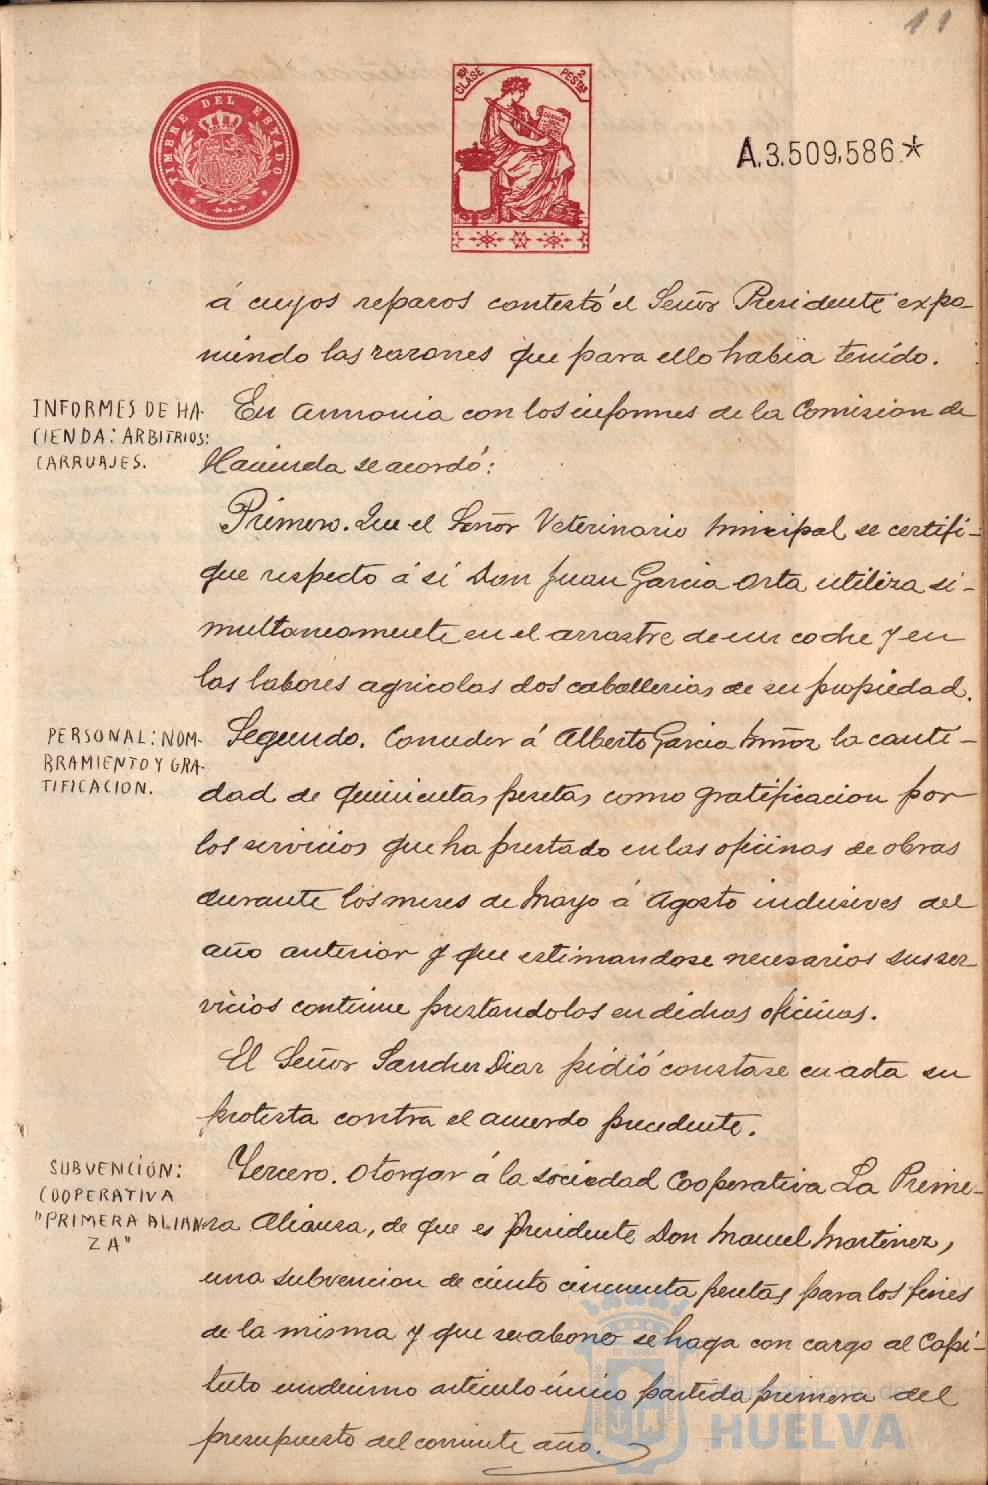 11
TIMBRE DEL ESTADO
10ª CLASE
2 PESTAS
A.3.509,586*
á cuyos reparos contestó el Señor Presidente expo-
niendo las razones que para ello habia tenido.
INFORMES DE HA-
CIENDA: ARBITRIOS:
CARRUAJES.
En armonia con los informes de la Comision de
Hacienda se acordó:
Primero. Que el Señor Veterinario Municipal se certifi-
que respecto á si Don Juan Garcia Orta utiliza si-
multaneamente en el arrastre de un coche y en
las labores agricolas dos caballerias de su propiedad.
PERSONAL: NOM-
BRAMIENTO Y GRA-
TIFICACION.
Segundo. Conceder á Alberto Garcia Muñoz la canti-
dad de quinientas pesetas como gratificacion por
los servicios que ha prestado en las oficinas de obras
durante los meses de Mayo á Agosto inclusives del
año anterior y que estimandose necesarios sus ser-
vicios continue prestandolos en dichas oficinas.
El Señor Sanchez Diaz pidió constase en acta su
protesta contra el acuerdo precedente.
SUBVENCIÓN:
COOPERATIVA
"PRIMERA ALIAN-
ZA"
Tercero. Otorgar á la sociedad Cooperativa La Prime-
ra Alianza, de que es Presidente Don Manuel Martinez,
una subvencion de ciento cincuenta pesetas para los fines
de la misma y que su abono se haga con cargo al Capi-
tulo undecimo articulo único partida primera del
presupuesto del corriente año.
Ayuntamiento de
HUELVA